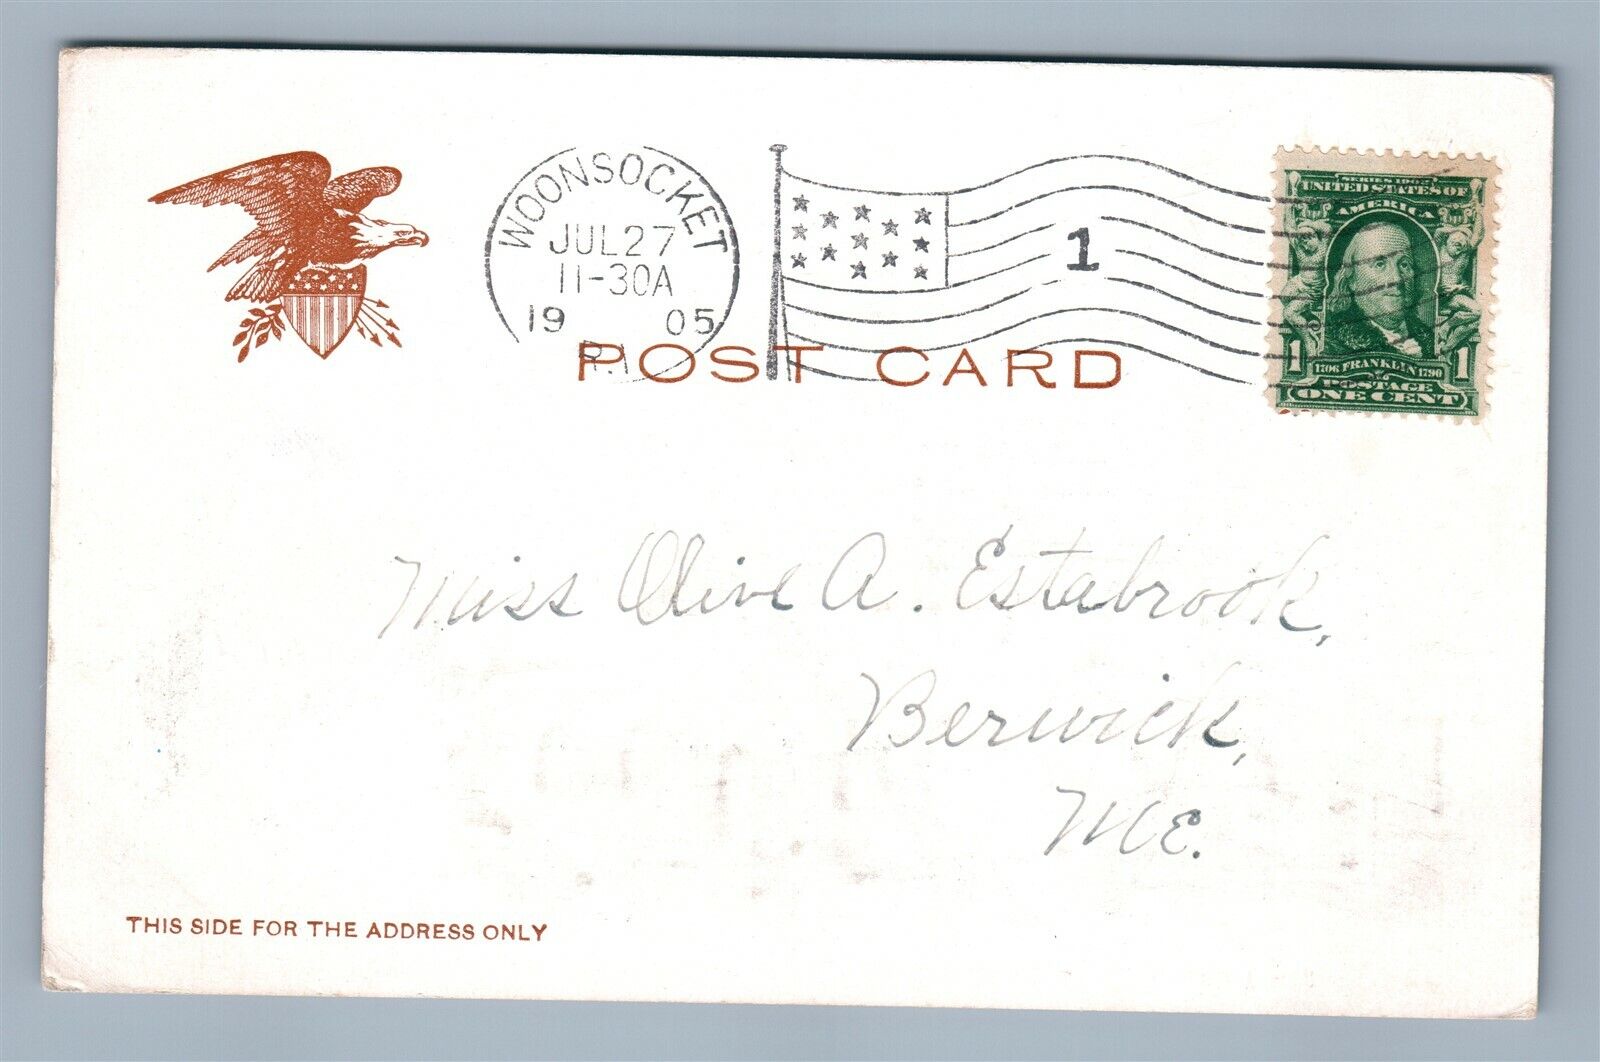 WOONSOCKET
JUL 27
11-30A
19 05
R.I.
1
SERIES 1902
UNITED STATES OF
AMERICA
1 1706 FRANKLIN 1790 1
POSTAGE
ONE CENT
POST CARD
Miss Olive A. Estabrook,
Berwick,
Me.
THIS SIDE FOR THE ADDRESS ONLY